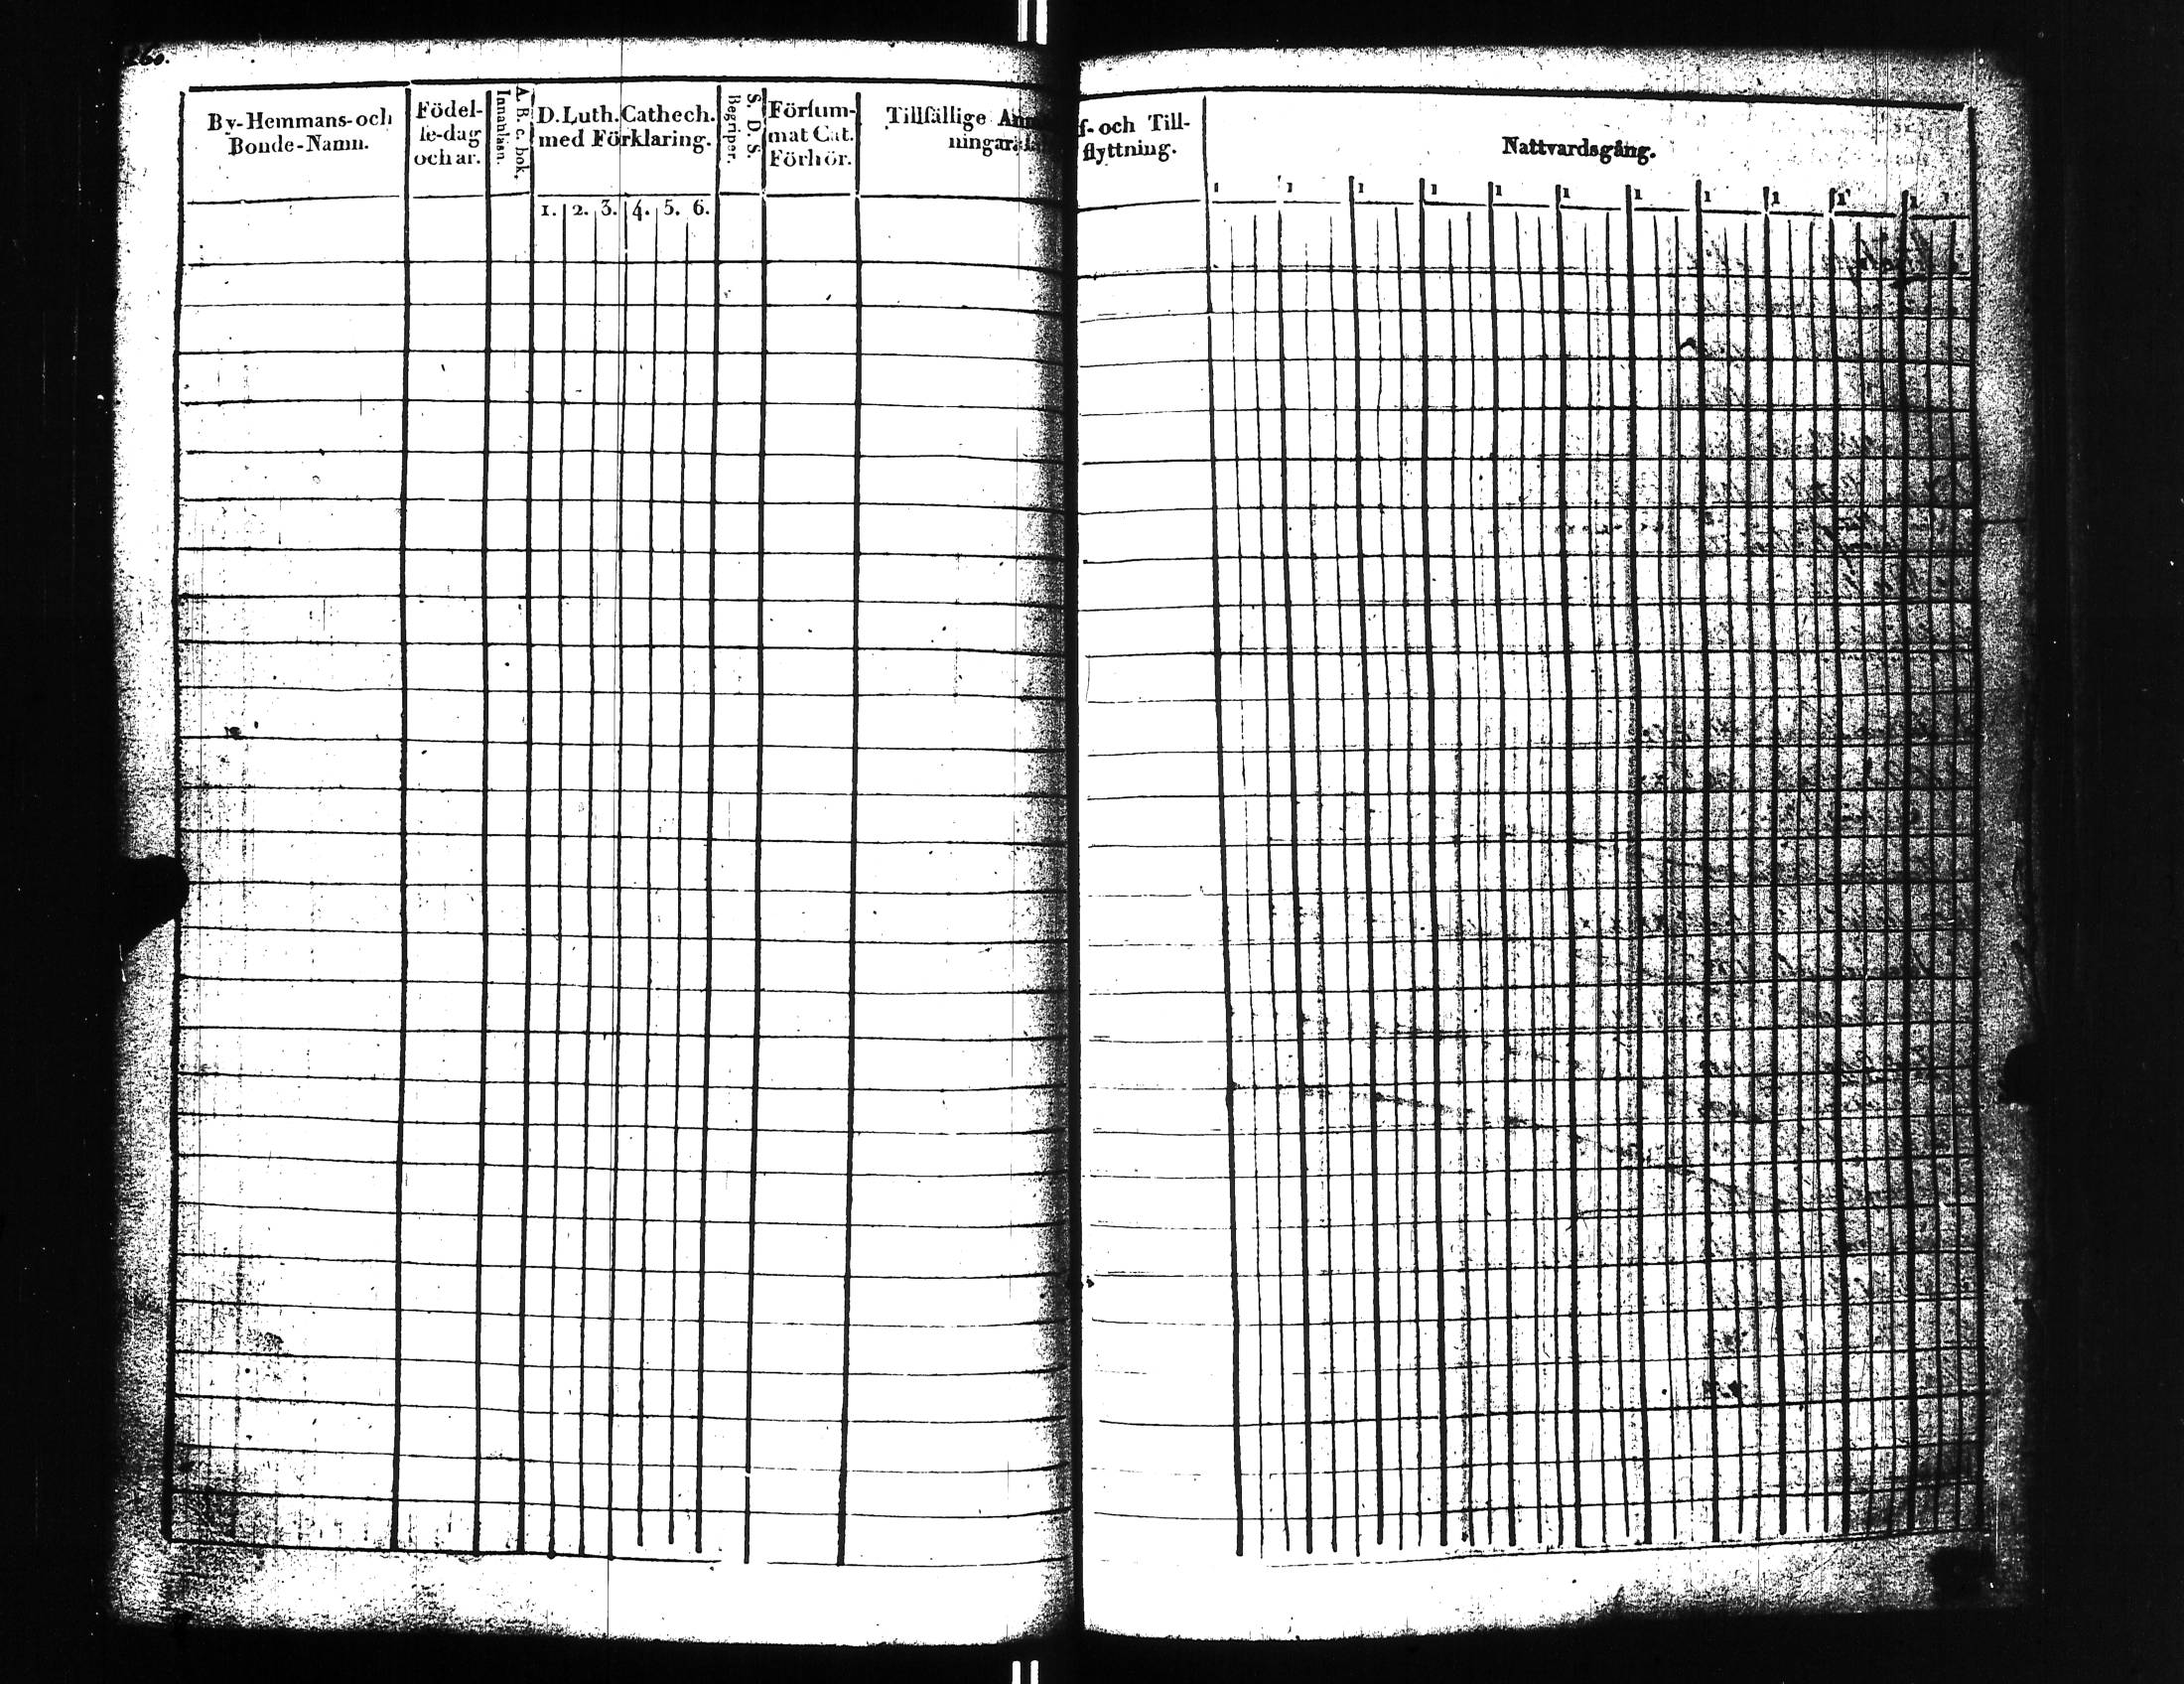 By-Hemmans-och
Bonde-Namn.
Födel-
se-dag
och år.
A. B. c. bok.
Innanläsn.
D. Luth. Cathech.
med Förklaring.
1. 2. 3. 4. 5. 6.
S. D. S.
Begriper.
Förſum-
mat Cat.
Förhör.
Tillfällige
ningar
och Till-
flyttning.
Nattvardsgång.
1 1 1 1 1 1 1 1 1 1 1